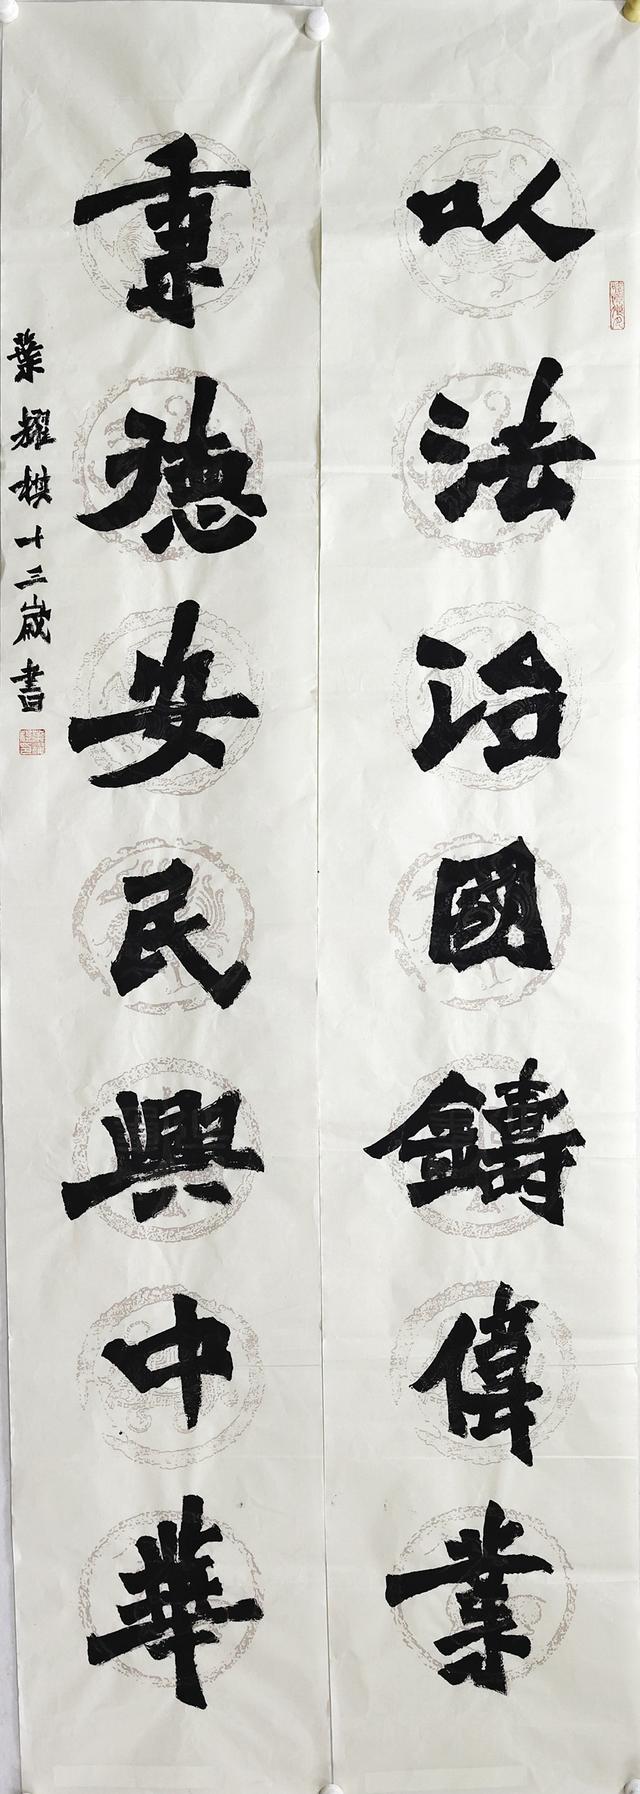 以法治國鑄偉業
秉德安民興中華
葉耀棋十三歲書